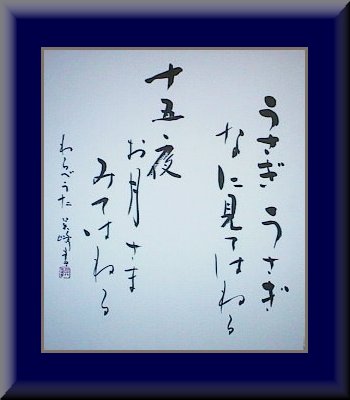 うさぎ うさぎ
なに見てはねる
十五夜
お月さま
みてはねる
わらべうた